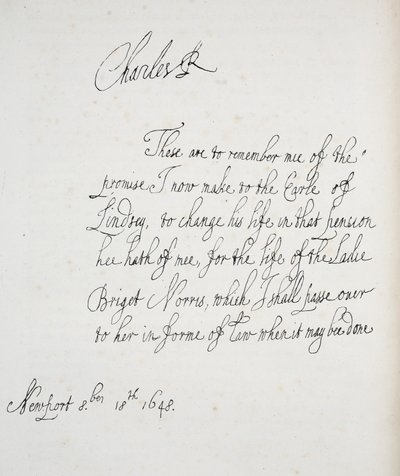 Charles R
These are to remember mee of the
promise I now make to the Earle of
Lindsey, to change his life in that pension
hee hath of mee, for the life of the Ladie
Briget Norris, which I shall passe over
to her in forme of Law when it may bee done
Newport 8.ber 18th 1648.